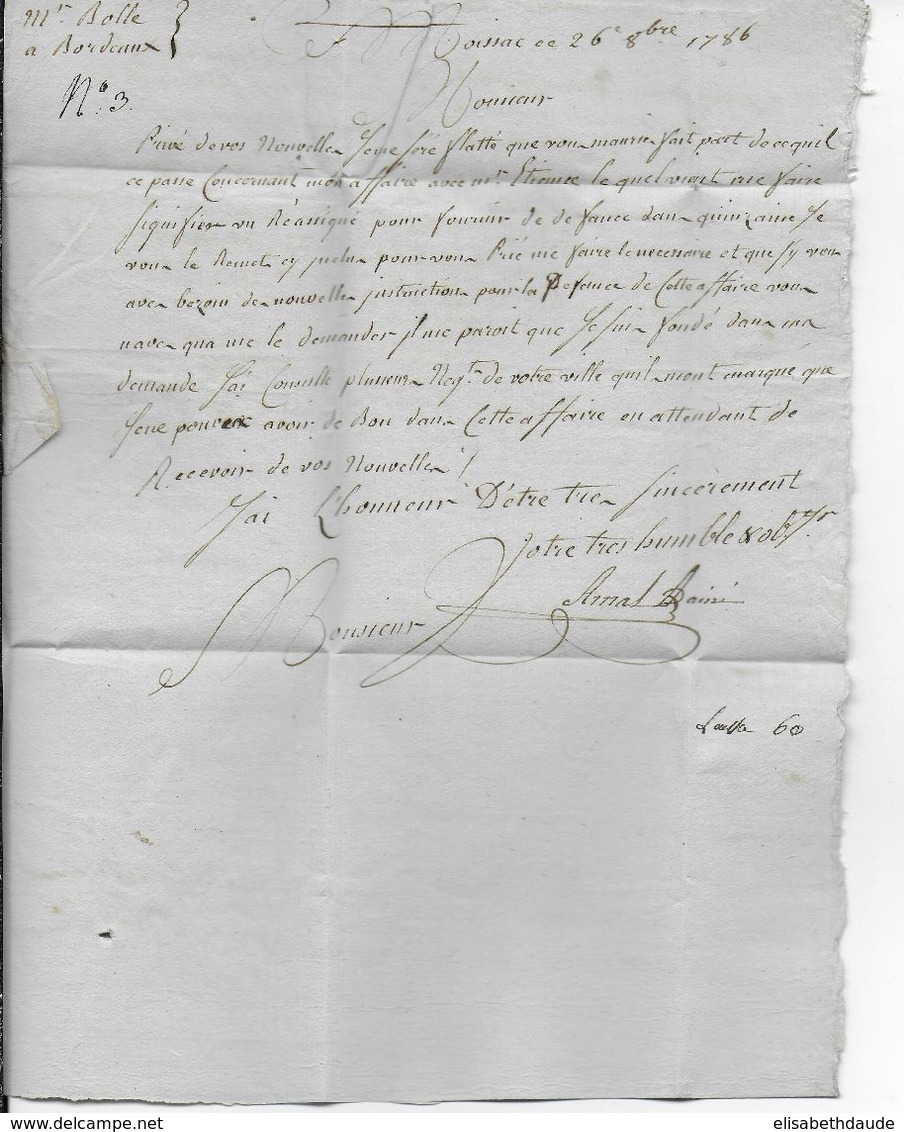 Mr. Bolle
a Bordeaux
Moissac ce 26e 8bre 1786
N° 3.
Monsieur
Privé de vos Nouvelles Je me seré flatté que vous mauries fait part de ce quil
ce passe Concernant mon affaire avec mr. Etienne le quel vient me faire
signifier un Réassigné pour fournir de defance dans quinzaine Je
vous le Remet cy jnclus pour vous Prié me faire le necessaire et que sy vous
aves bezoin de nouvelles jnstructions pour la Defence de Cette affaire vous
naves qua me le demander jl me paroit que Je suis fondé dans ma
demande Jai Consulté plusieurs Negts. de votre ville quils mont marqué que
Je ne pouvois avoir de Bon dans Cette affaire en attendant de
Recevoir de vos Nouvelles
Jai L'honneur D'être tres sincérement
Votre tres humble & obt. Sr.
Arnal Lainé
Monsieur
60
elisabethdaude